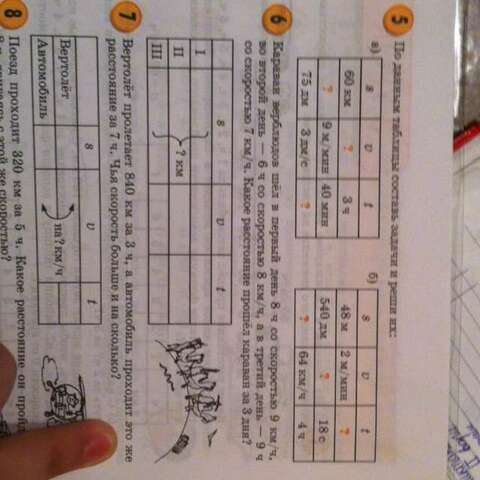 5 По данным таблицы составь задачи и реши их:
а)
s v t
60 км ? 3 ч
? 9 м/мин 40 мин
75 дм 3 дм/с ?
б)
s v t
48 м 2 м/мин ?
540 дм ? 18 с
? 64 км/ч 4 ч
6 Караван верблюдов шёл в первый день 8 ч со скоростью 9 км/ч,
во второй день — 6 ч со скоростью 8 км/ч, а в третий день — 9 ч
со скоростью 7 км/ч. Какое расстояние прошёл караван за 3 дня?
s v t
I
II
III
? км
7 Вертолёт пролетает 840 км за 3 ч, а автомобиль проходит это же
расстояние за 7 ч. Чья скорость больше и на сколько?
s v t
Вертолёт
Автомобиль
на ? км/ч
8 Поезд проходит 320 км за 5 ч. Какое расстояние он
с этой же скоростью?